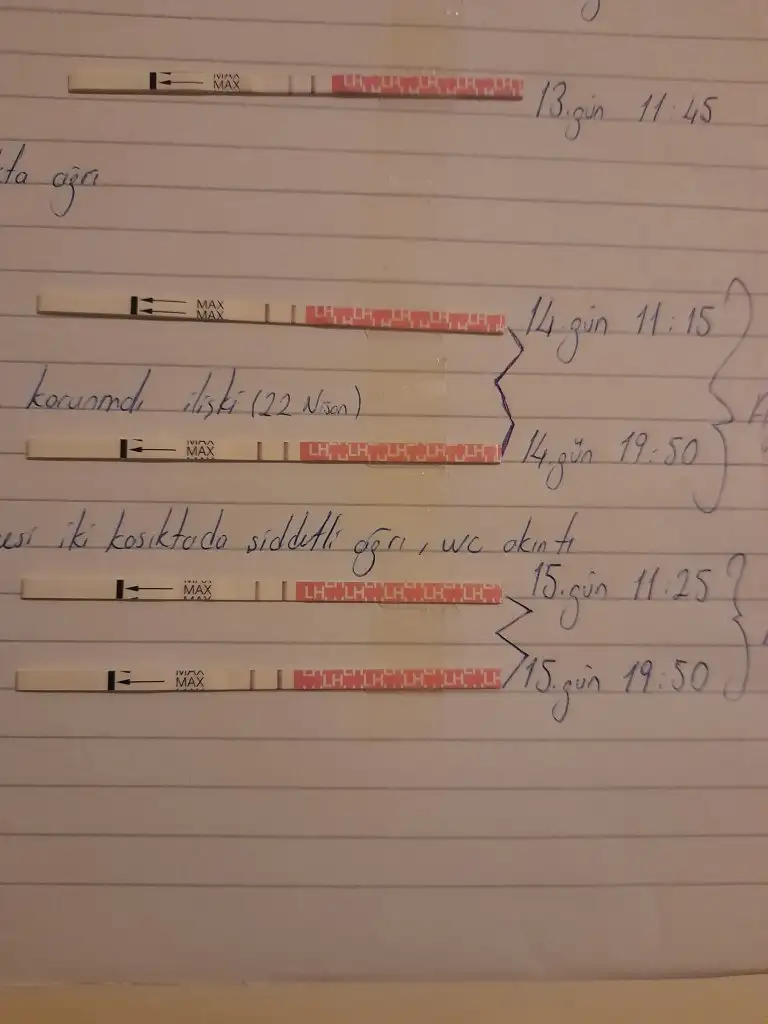 MAX
MAX
LH LH LH LH LH
13.gün 11:45
ağrı
MAX
MAX
LH LH LH LH LH
14.gün 11:15
korunmalı ilişki (22 Nisan)
MAX
MAX
LH LH LH LH LH
14.gün 19:50
iki kasıktada şiddetli ağrı, wc akıntı
MAX
MAX
LH LH LH LH LH
15.gün 11:25
MAX
MAX
LH LH LH LH LH
15.gün 19:50